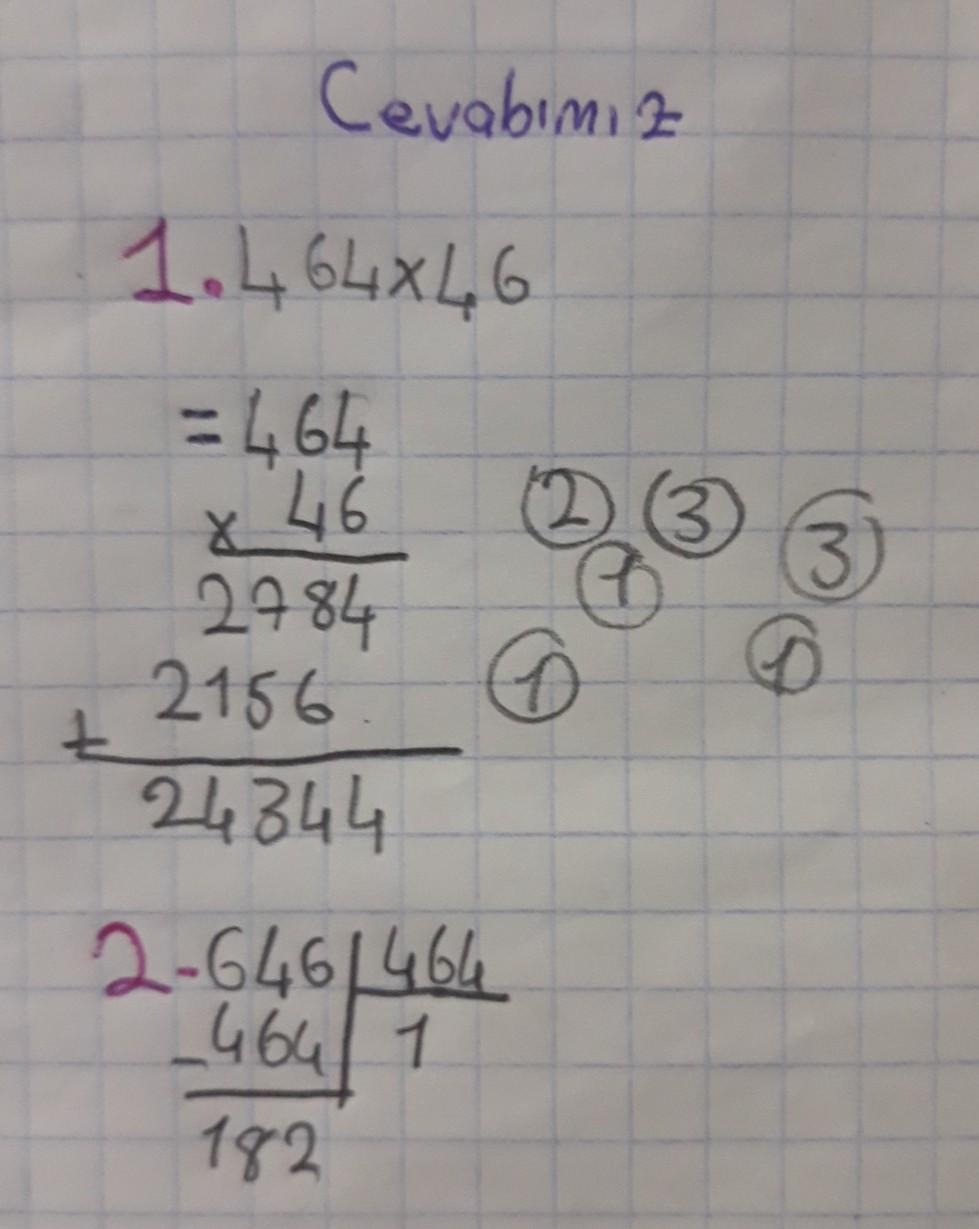 Cevabımız
1. 464x46
= 464
x 46
2784
2156
+
24344
2 3 3
1
1 1
2-646 464
-464 1
182